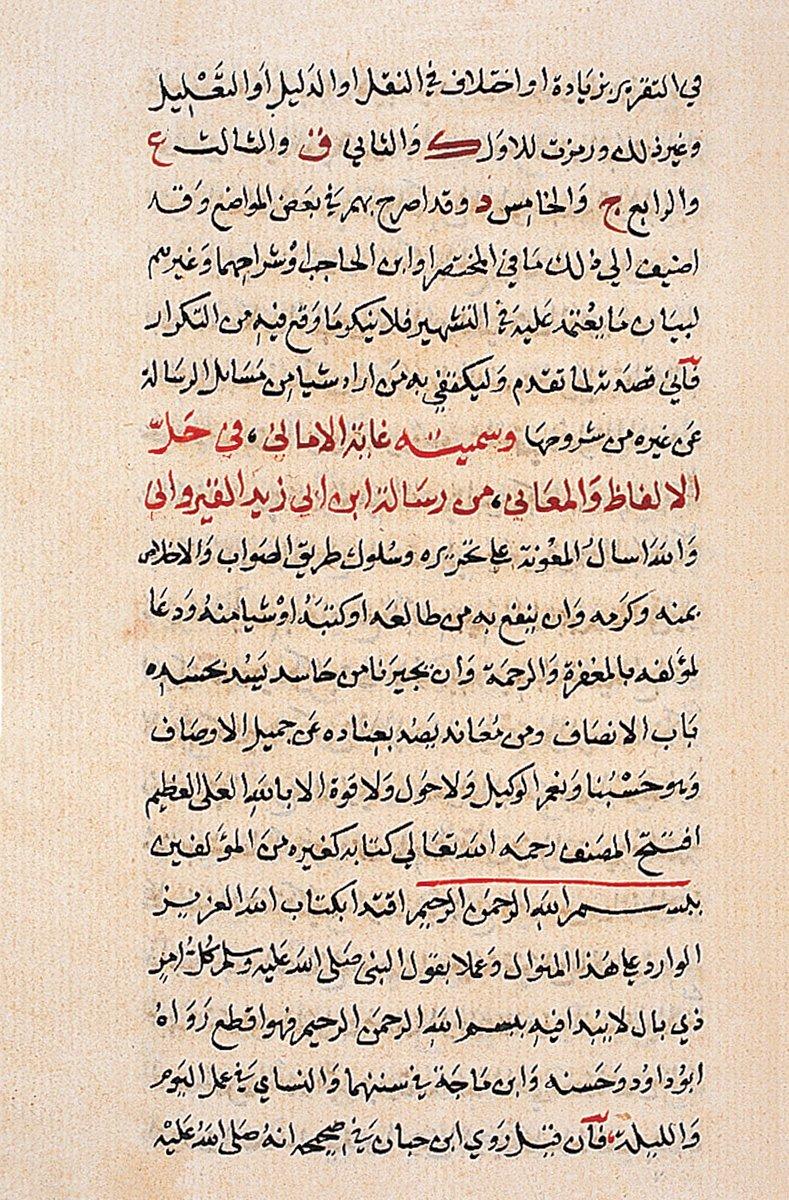 في التقرير بزيادة او اختلاف في النقل او الدليل أو التعْليل
وغير ذلك ورمزت للاول ك والثاني ف والثالث ع
والرابع ج والخامس د وقد اصرح بهم في بعض المواضع وقد
اضيف الي ذلك ما في المختصر او ابن الحاجب او شراحهما وغيرهم
لبيان ما يعتمد عليه في التشهير فلا ينكر ما وقع فيه من التكرار
فاني قصدته لما تقدم وليكتفي به من اراد شيا من مسائل الرسالة
عن غيره من شروحها وسميته غاية الاماني، في حلّ
الالفاظ والمعاني، من رسالة ابن ابي زيد القيرواني
والله اسال المعونة علي تحريره وسلوك طريق الصواب والاخلاص
بمنه وكرمه وان ينفع به من طالعه او كتبه او شيا منه ودعا
لمؤلفه بالمغفرة والرحمة وان يجيرنا من حاسد يسد بحسده
باب الانصاف ومن معاند يصد بعناده عن جميل الاوصاف
وهو حسْبنا ونعم الوكيل ولا حول ولا قوة الا بالله العلي العظيم
افتتح المصنف رحمه الله تعالي كتابه كغيره من المؤلفين
بسم الله الرحمن الرحيم اقتدا بكتاب الله العزيز
الوارد علي هذا المنوال وعملا بقول النبي صلي الله عليه وسلم كل امر
ذي بال لا يبدا فيه ببسم الله الرحمن الرحيم فهو اقطع رواه
ابو داود وحسنه وابن ماجة في سننهما والنساي في عمل اليوم
والليلة، فان قيل روي ابن حبان في صحيحه انه صلي الله عليْه